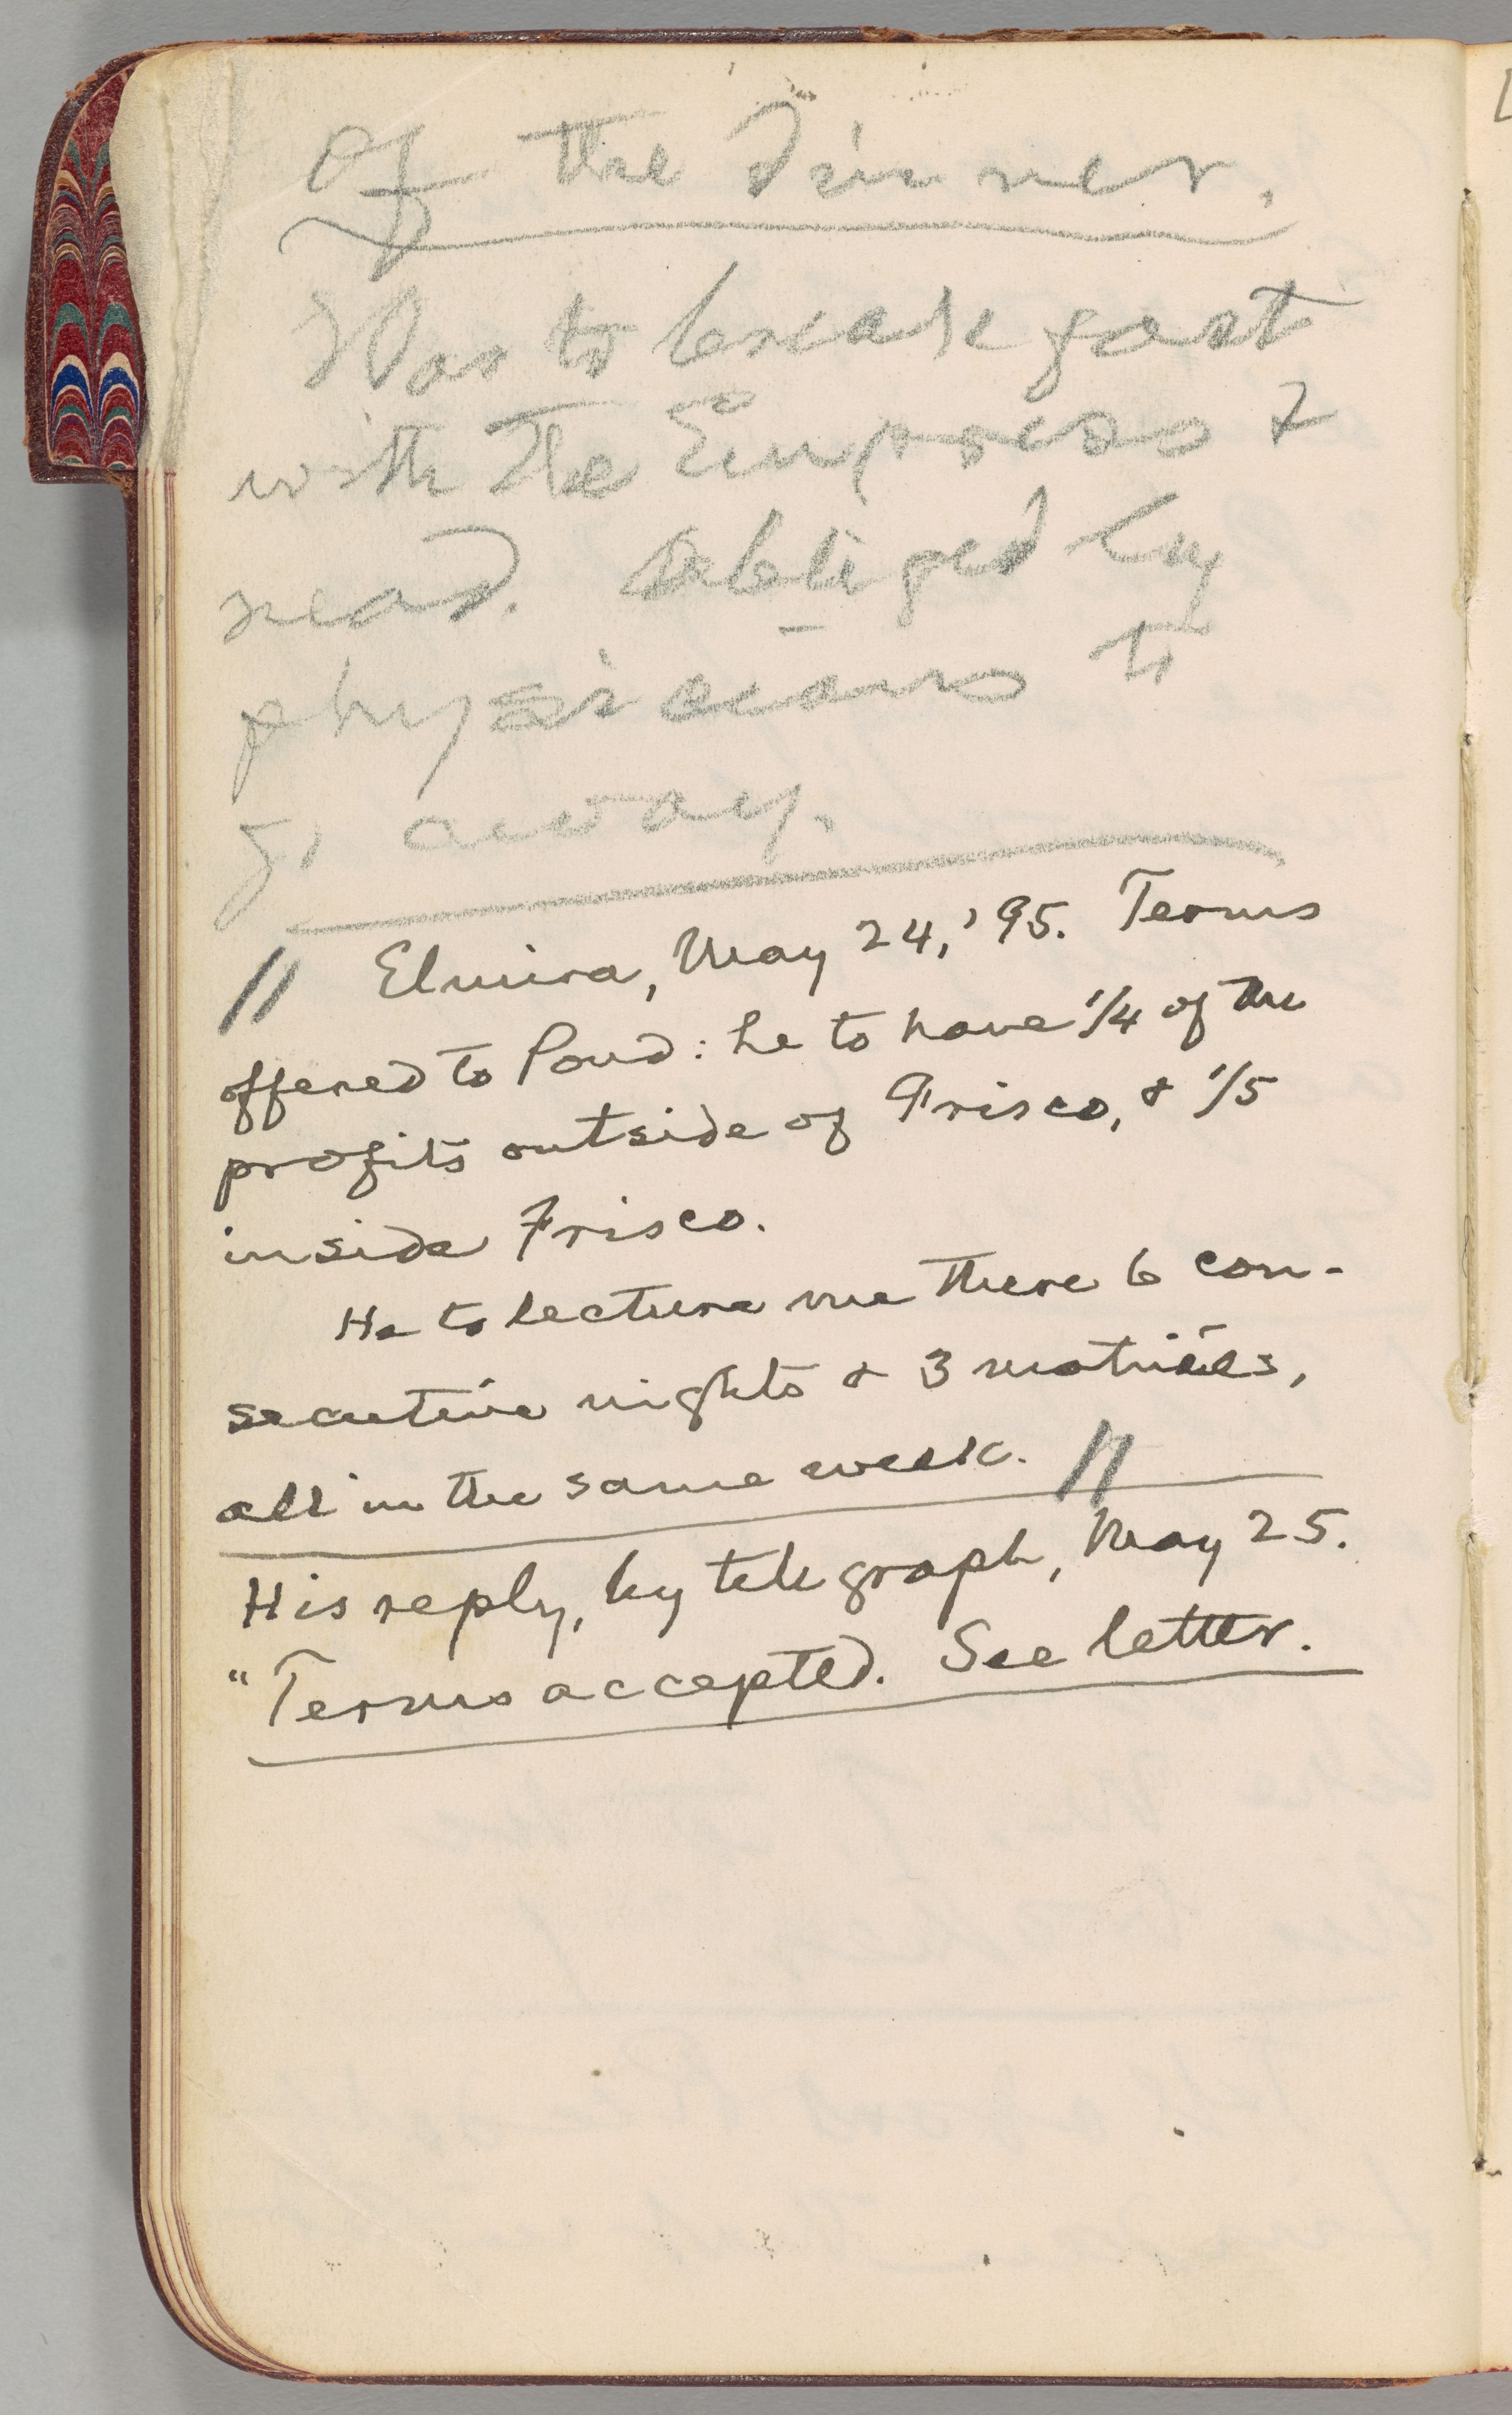 of the dinner.
Was to breakfast
with the Empress &
read. Obliged by
physicians to
go away.
// Elmira, May 24, '95. Terms
offered to Pond: he to have 1/4 of the
profits outside of 'Frisco, & 1/5
inside Frisco.
He to lecture me there 6 con-
secutive nights & 3 matinées,
all in the same week. //
His reply, by telegraph, May 25.
"Terms accepted. See letter.